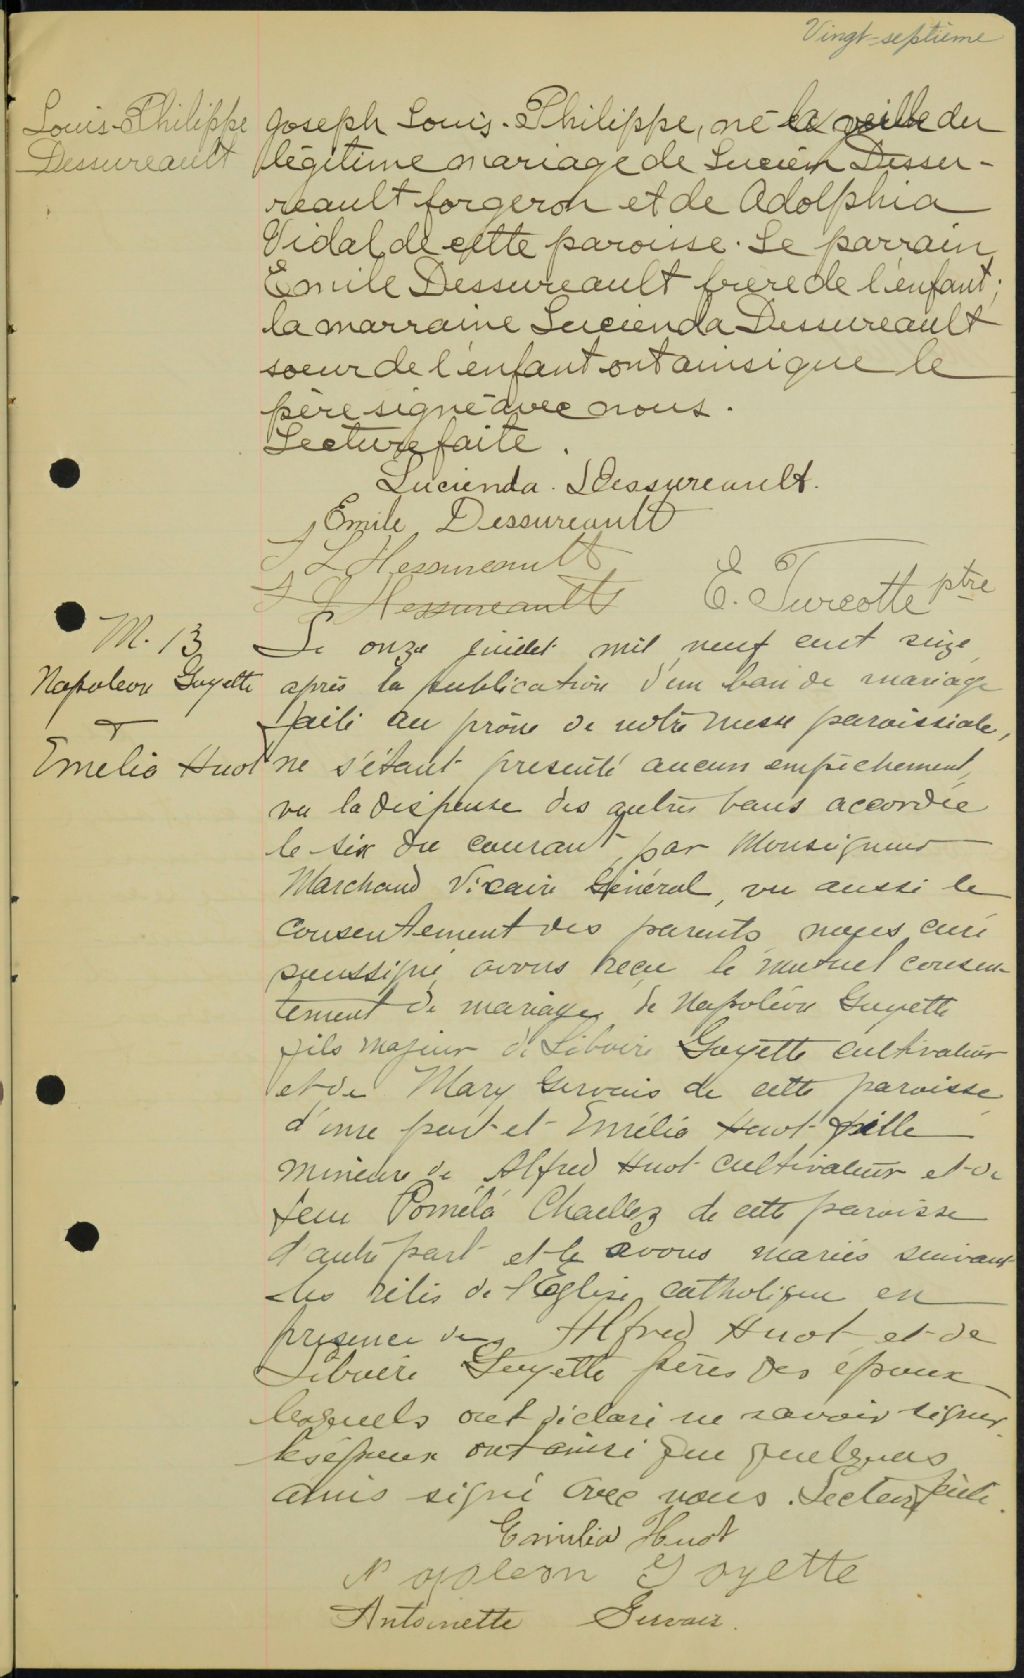 Vingt-septième
Louis-Philippe
Dessureault
Joseph Louis-Philippe, né la veille du
légitime mariage de Lucien Dessu-
reault forgeron et de Adolphia
Vidal de cette paroisse. Le parrain,
Emile Dessureault frère de l'enfant;
la marraine Lucienda Dessureault
soeur de l'enfant ont ainsi que le
père signé avec nous.
Lecture faite.
Lucienda Dessureault.
Emile Dessureault
J L Dessureault
J L Dessureault
E. Turcotte ptre
M. 13
Napoleon Goyette
&
Emelia Huot
Le onze juillet mil neuf cent seize,
après la publication d'un ban de mariage
faite au prône de notre messe paroissiale,
ne s'étant présenté aucun empêchement,
vu la dispense des autres bans accordée
le six du courant par Monseigneur
Marchand Vicaire Général, vu aussi le
consentement des parents, nous, curé
soussigné, avons reçu le mutuel consen-
tement de mariage de Napoléon Goyette
fils majeur de Liboire Goyette cultivateur
et de Mary Gervais de cette paroisse,
d'une part et Emélia Huot fille
mineure de Alfred Huot cultivateur et de
feue Poméla de cette paroisse
d'autre part et les avons mariés suivant
les rites de l'Eglise catholique en
presence de Alfred Huot et de
Liboire Goyette pères des époux
lesquels ont déclaré ne savoir signer.
les époux ont ainsi que quelques
amis signé avec nous. Lecture faite.
Emilia Huot
Napoleon Goyette
Antoinette Gervais.